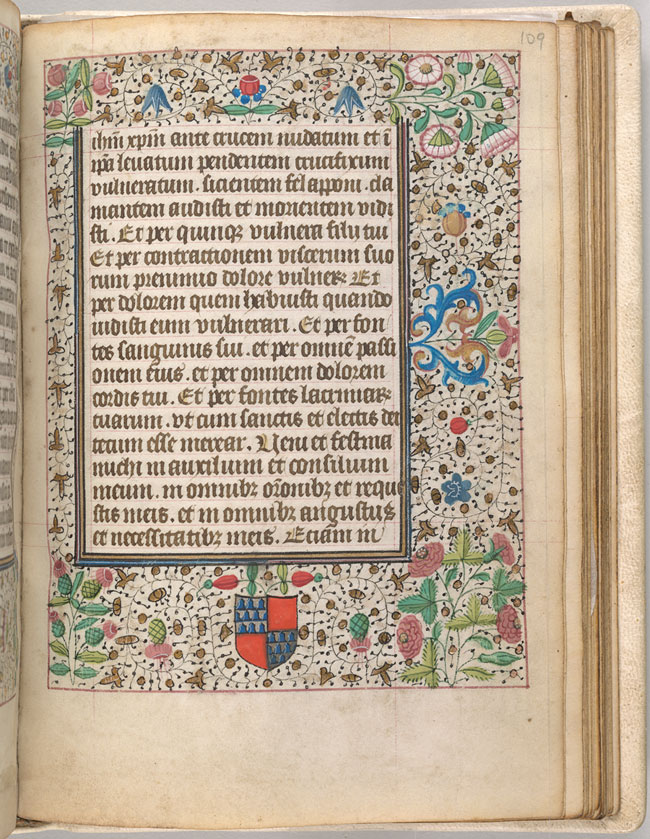 109
ihm xpm ante crucem nudatum et i
ipa leuatum pendentem crucifixum
vulneratum . sicientem fel apponi . cla
mantem audisti et morientem vidi
sti . Et per quinq vulnera filii tui
Et per contractionem viscerum suo
rum pre nimio dolore vulner Et
per dolorem quem habuisti quando
uidisti eum vulnerari . Et per fon
tes sanguinis sui . et per omne passi
onem eius . et per omnem dolorem
cordis tui . Et per fontes lacrimar
tuarum . vt cum sanctis et electis dei
tecum esse merear . Veni et festina
michi in auxilium et consilium
meum . in omnibz oronibz et reque
stis meis . et in omnibz angustiis
et necessitatibz meis . Eciam in